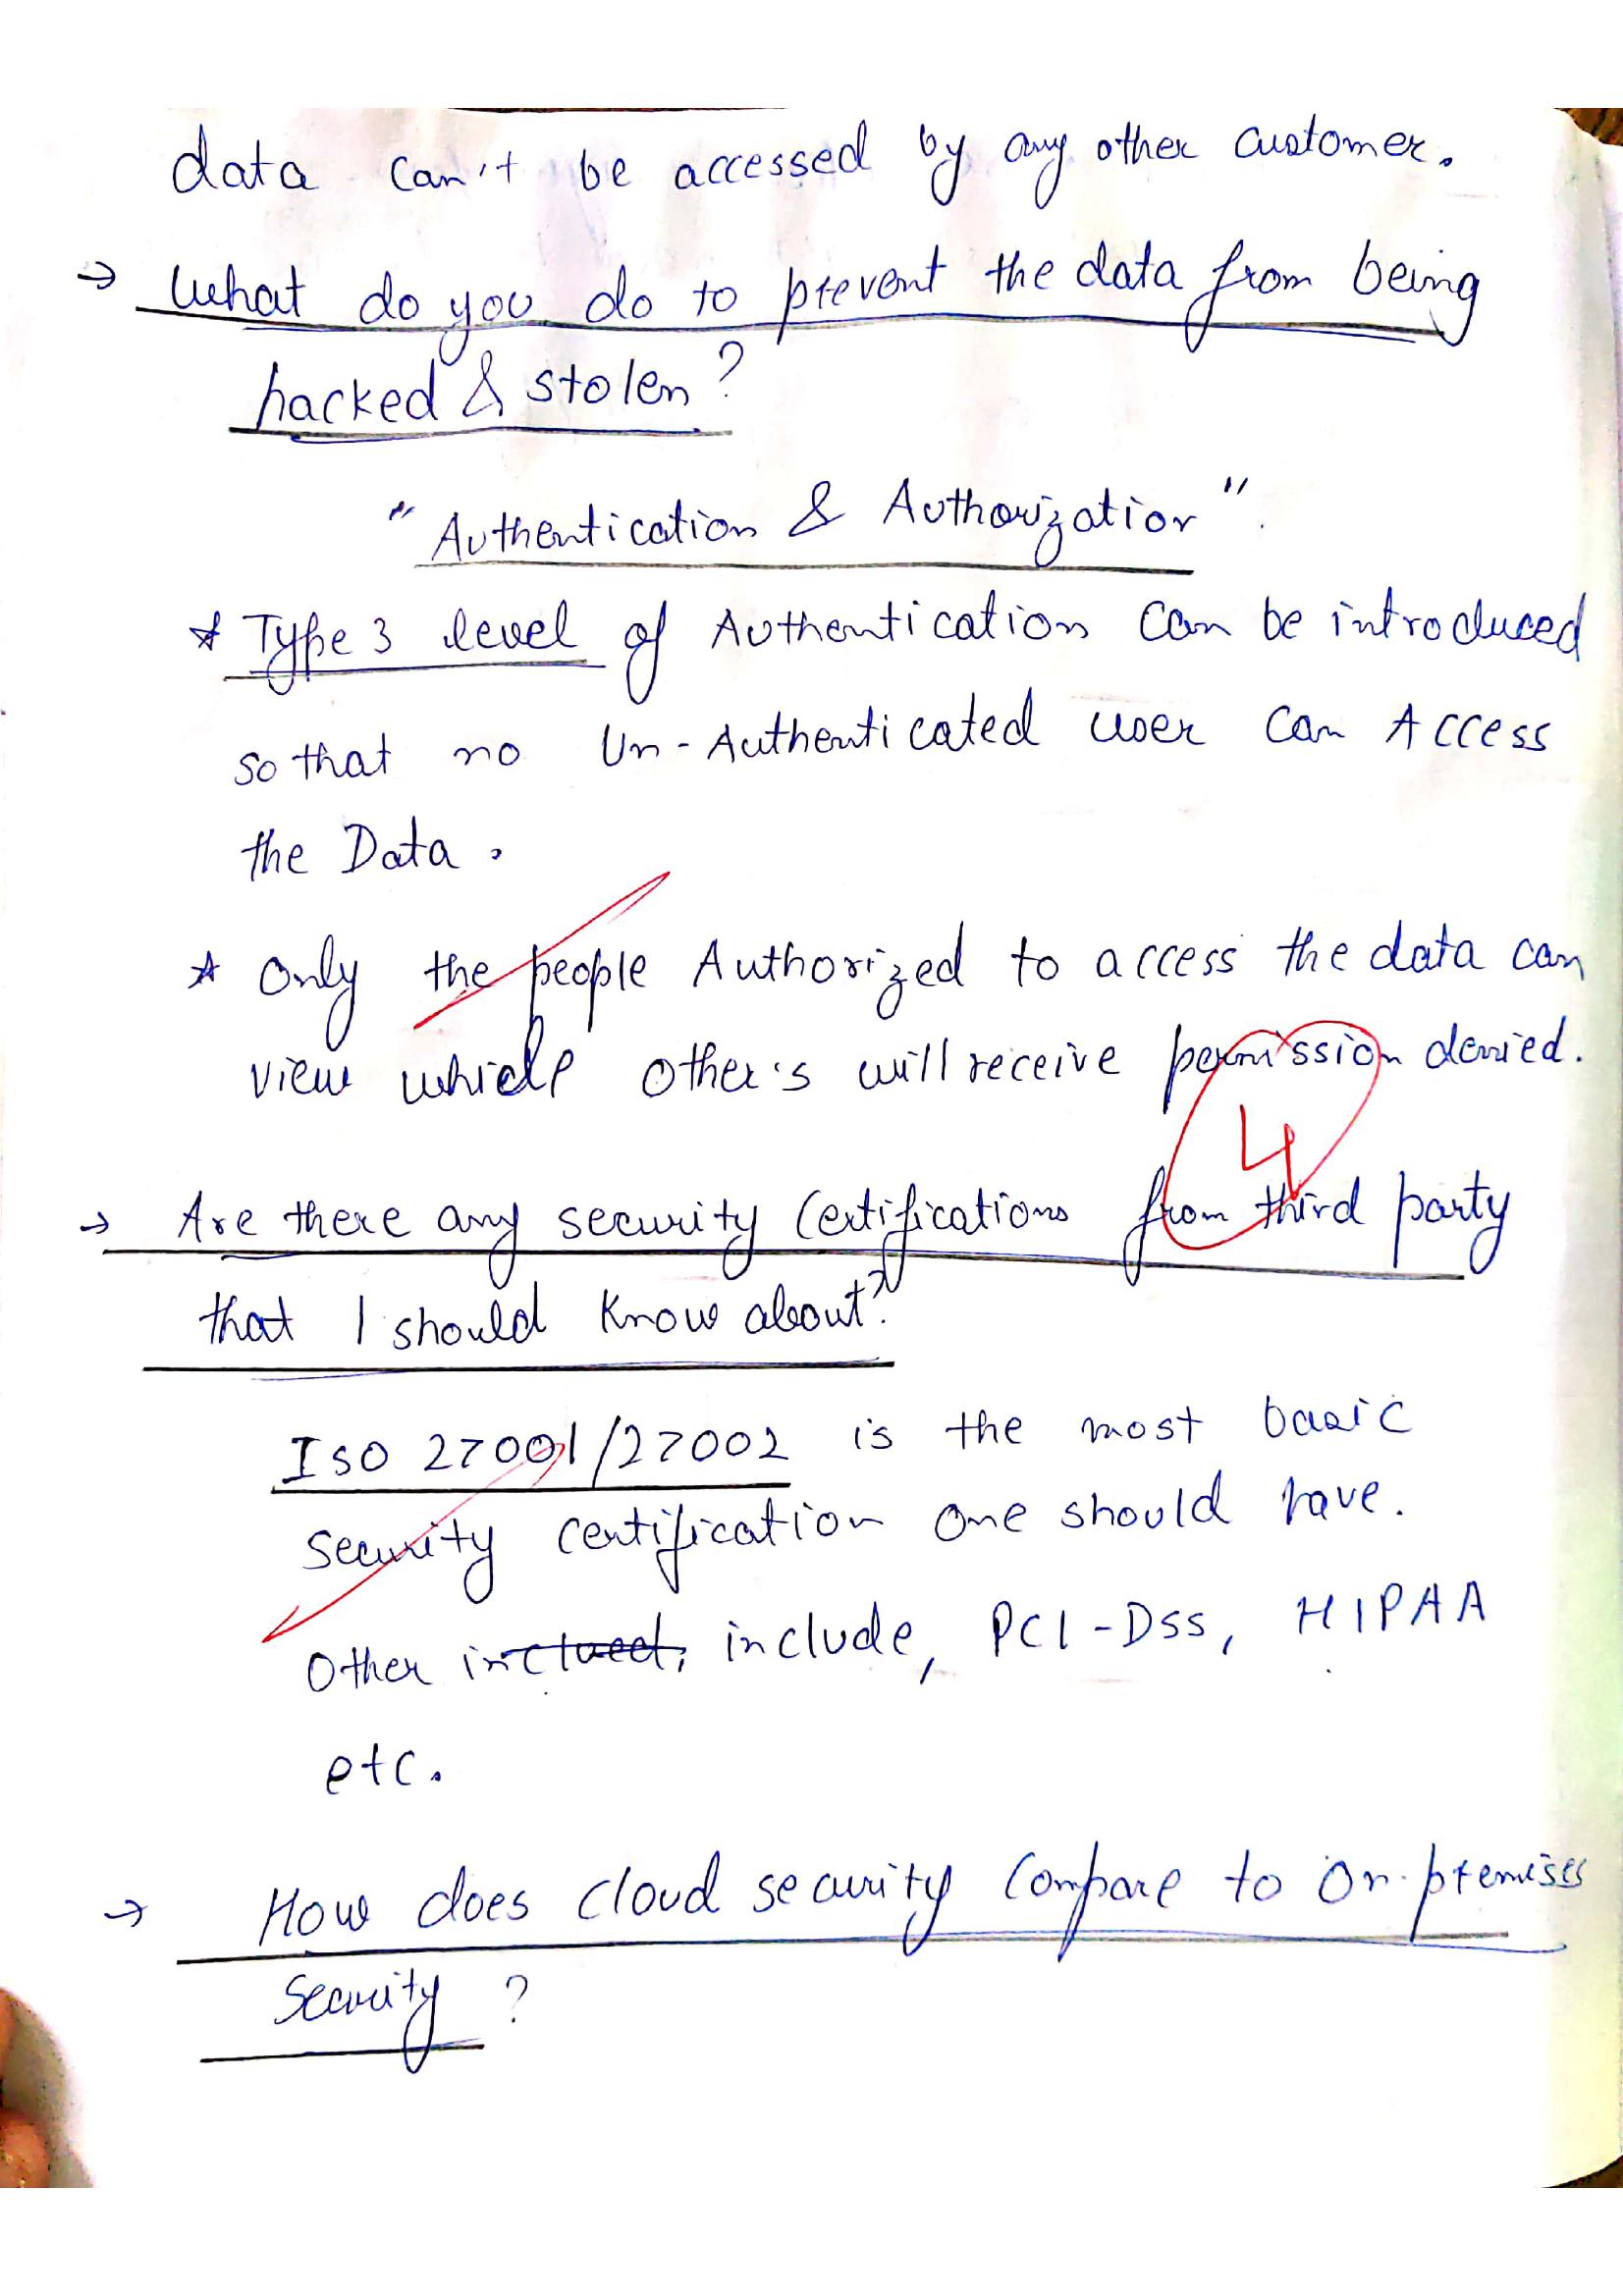 data can't be accessed by any other customer.
→ What do you do to prevent the data from being
hacked & stolen?
"Authentication & Authorization".
* Type 3 level of Authentication can be introduced
so that no Un-Authenticated user can Access
the Data.
* Only the people Authorized to access the data can
view while other's will receive permission denied.
4
→ Are there any security Certifications from third party
that I should know about?
ISO 27001/27002 is the most basic
security certification one should have.
Other include, PCI-DSS, HIPAA
etc.
→ How does cloud security compare to on-premises
security?